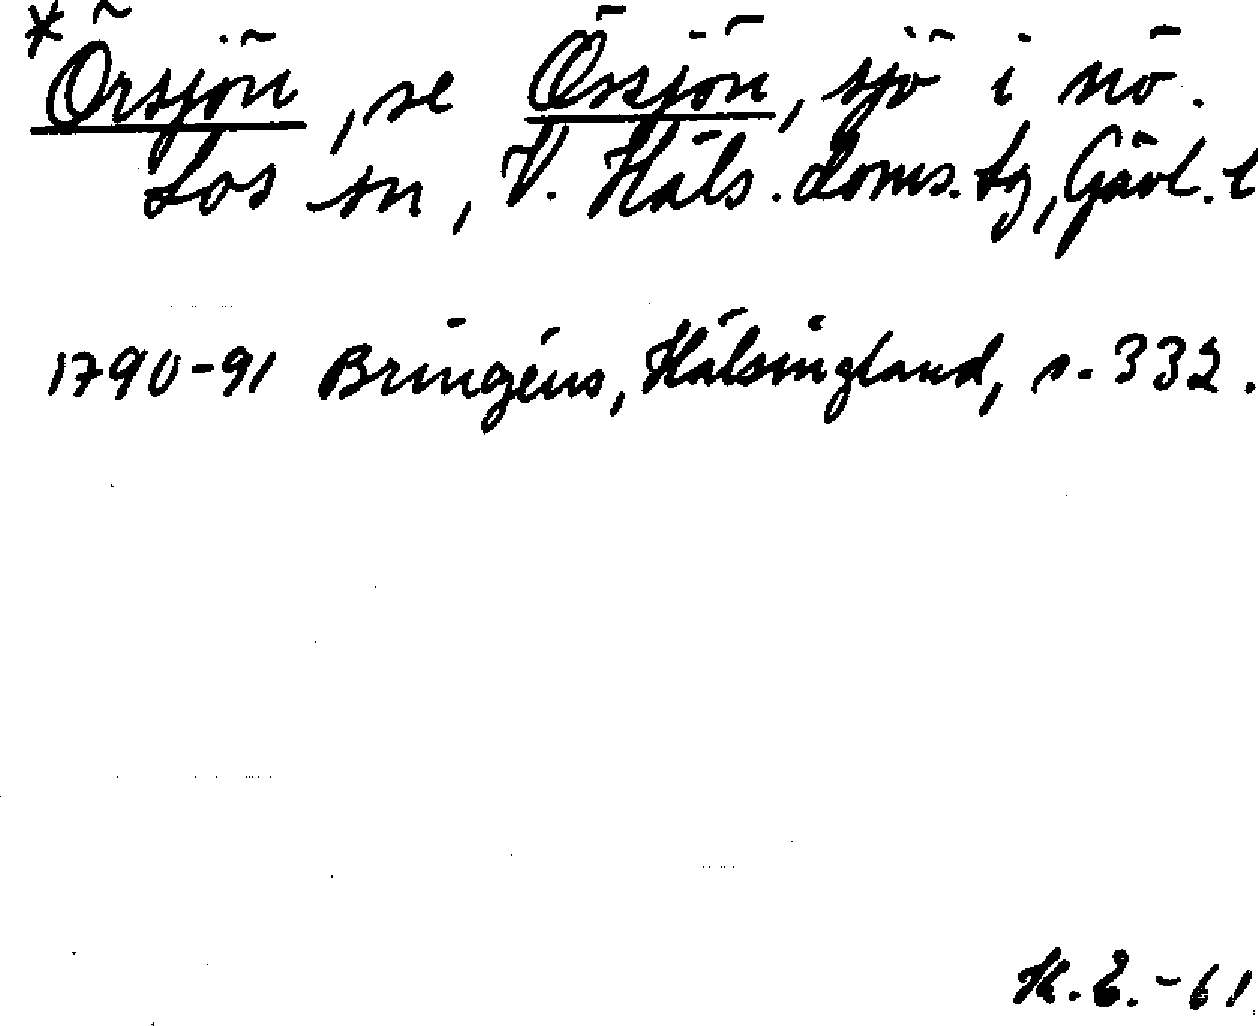 *Örsjön, se Össjön, sjö i nö.
Los sn, V. Häls. doms. tg, Gävl. l
1790-91 Bringéus, Hälsingland, s. 332.
K.E.-61